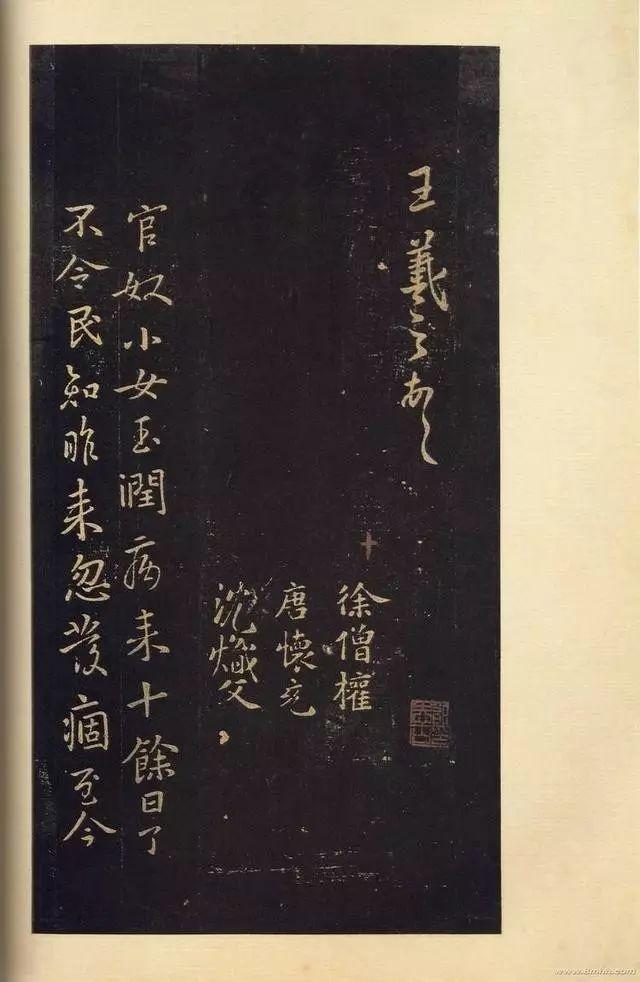 王羲之頓首
徐僧權
唐懷充
沈熾文
官奴小女玉潤病来十餘日了
不令民知昨来忽發痼至今